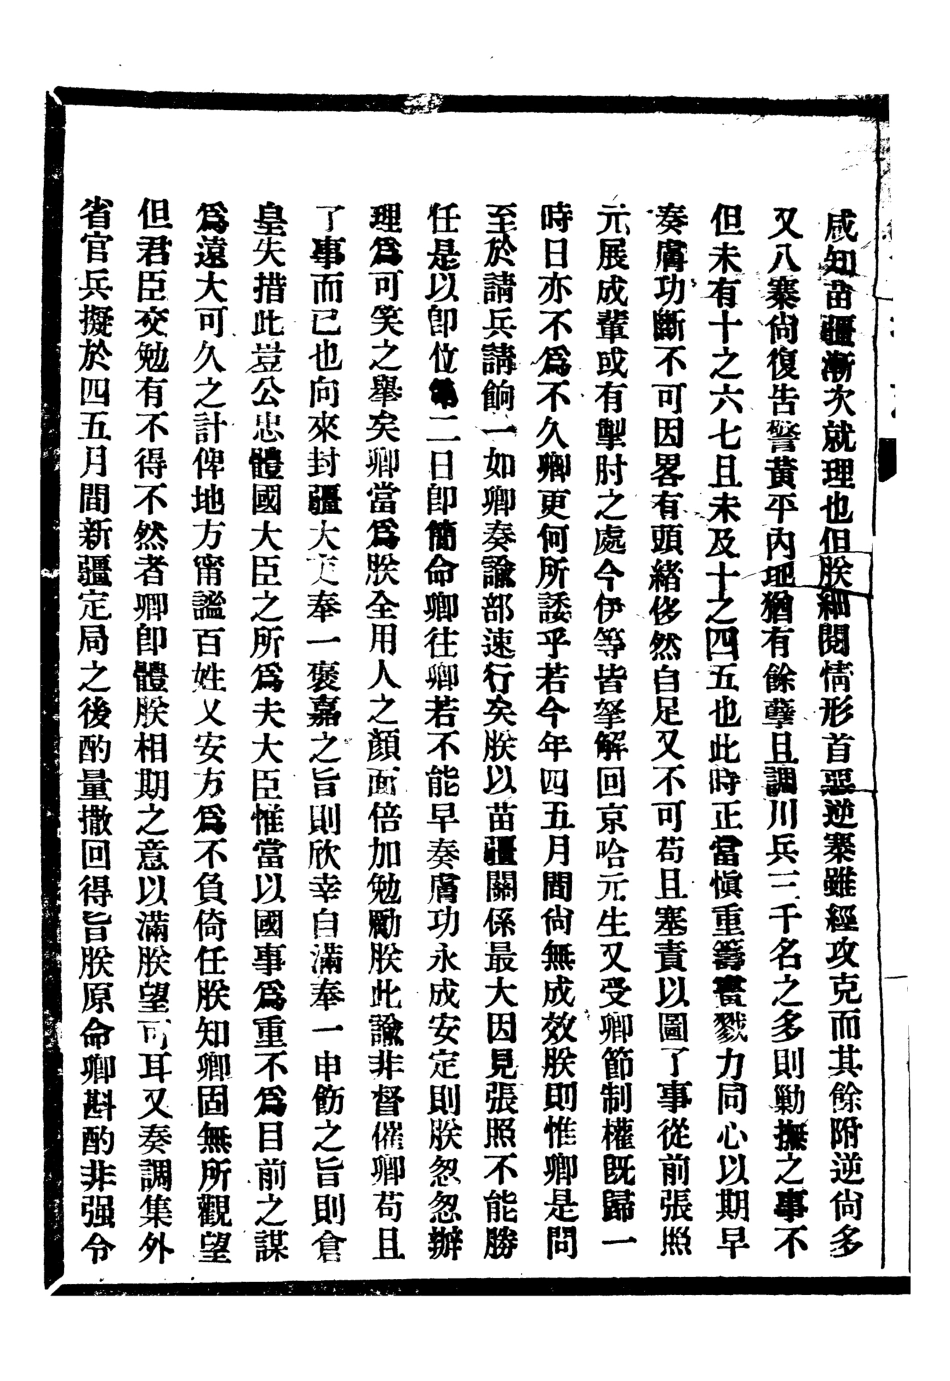 咸知苗疆漸次就理也但朕細閱情形首惡逆寨雖經攻克而其餘附逆尙多
又八寨尙復吿警黃平內地猶有餘孽且調川兵三千名之多則勦撫之事不
但未有十之六七且未及十之四五也此時正當愼重籌畫戮力同心以期早
奏膚功斷不可因畧有頭緒侈然自足又不可苟且塞責以圖了事從前張照
元展成輩或有掣肘之處今伊等皆拏解回京哈元生又受卿節制權既歸一
時日亦不爲不久卿更何所諉乎若今年四五月間尙無成效朕則惟卿是問
至於請兵請餉一如卿奏諭部速行矣朕以苗疆關係最大因見張照不能勝
任是以卽位第二日卽簡命卿往卿若不能早奏膚功永成安定則朕怱怱辦
理爲可笑之舉矣卿當爲朕全用人之顏面倍加勉勵朕此諭非督催卿苟且
了事而已也向來封疆大吏奉一褒嘉之旨則欣幸自滿奉一申飭之旨則倉
皇失措此豈公忠體國大臣之所爲夫大臣惟當以國事爲重不爲目前之謀
爲遠大可久之計俾地方甯謐百姓乂安方爲不負倚任朕知卿固無所觀望
但君臣交勉有不得不然者卿卽體朕相期之意以滿朕望可耳又奏調集外
省官兵擬於四五月間新疆定局之後酌量撤回得旨朕原命卿斟酌非强令